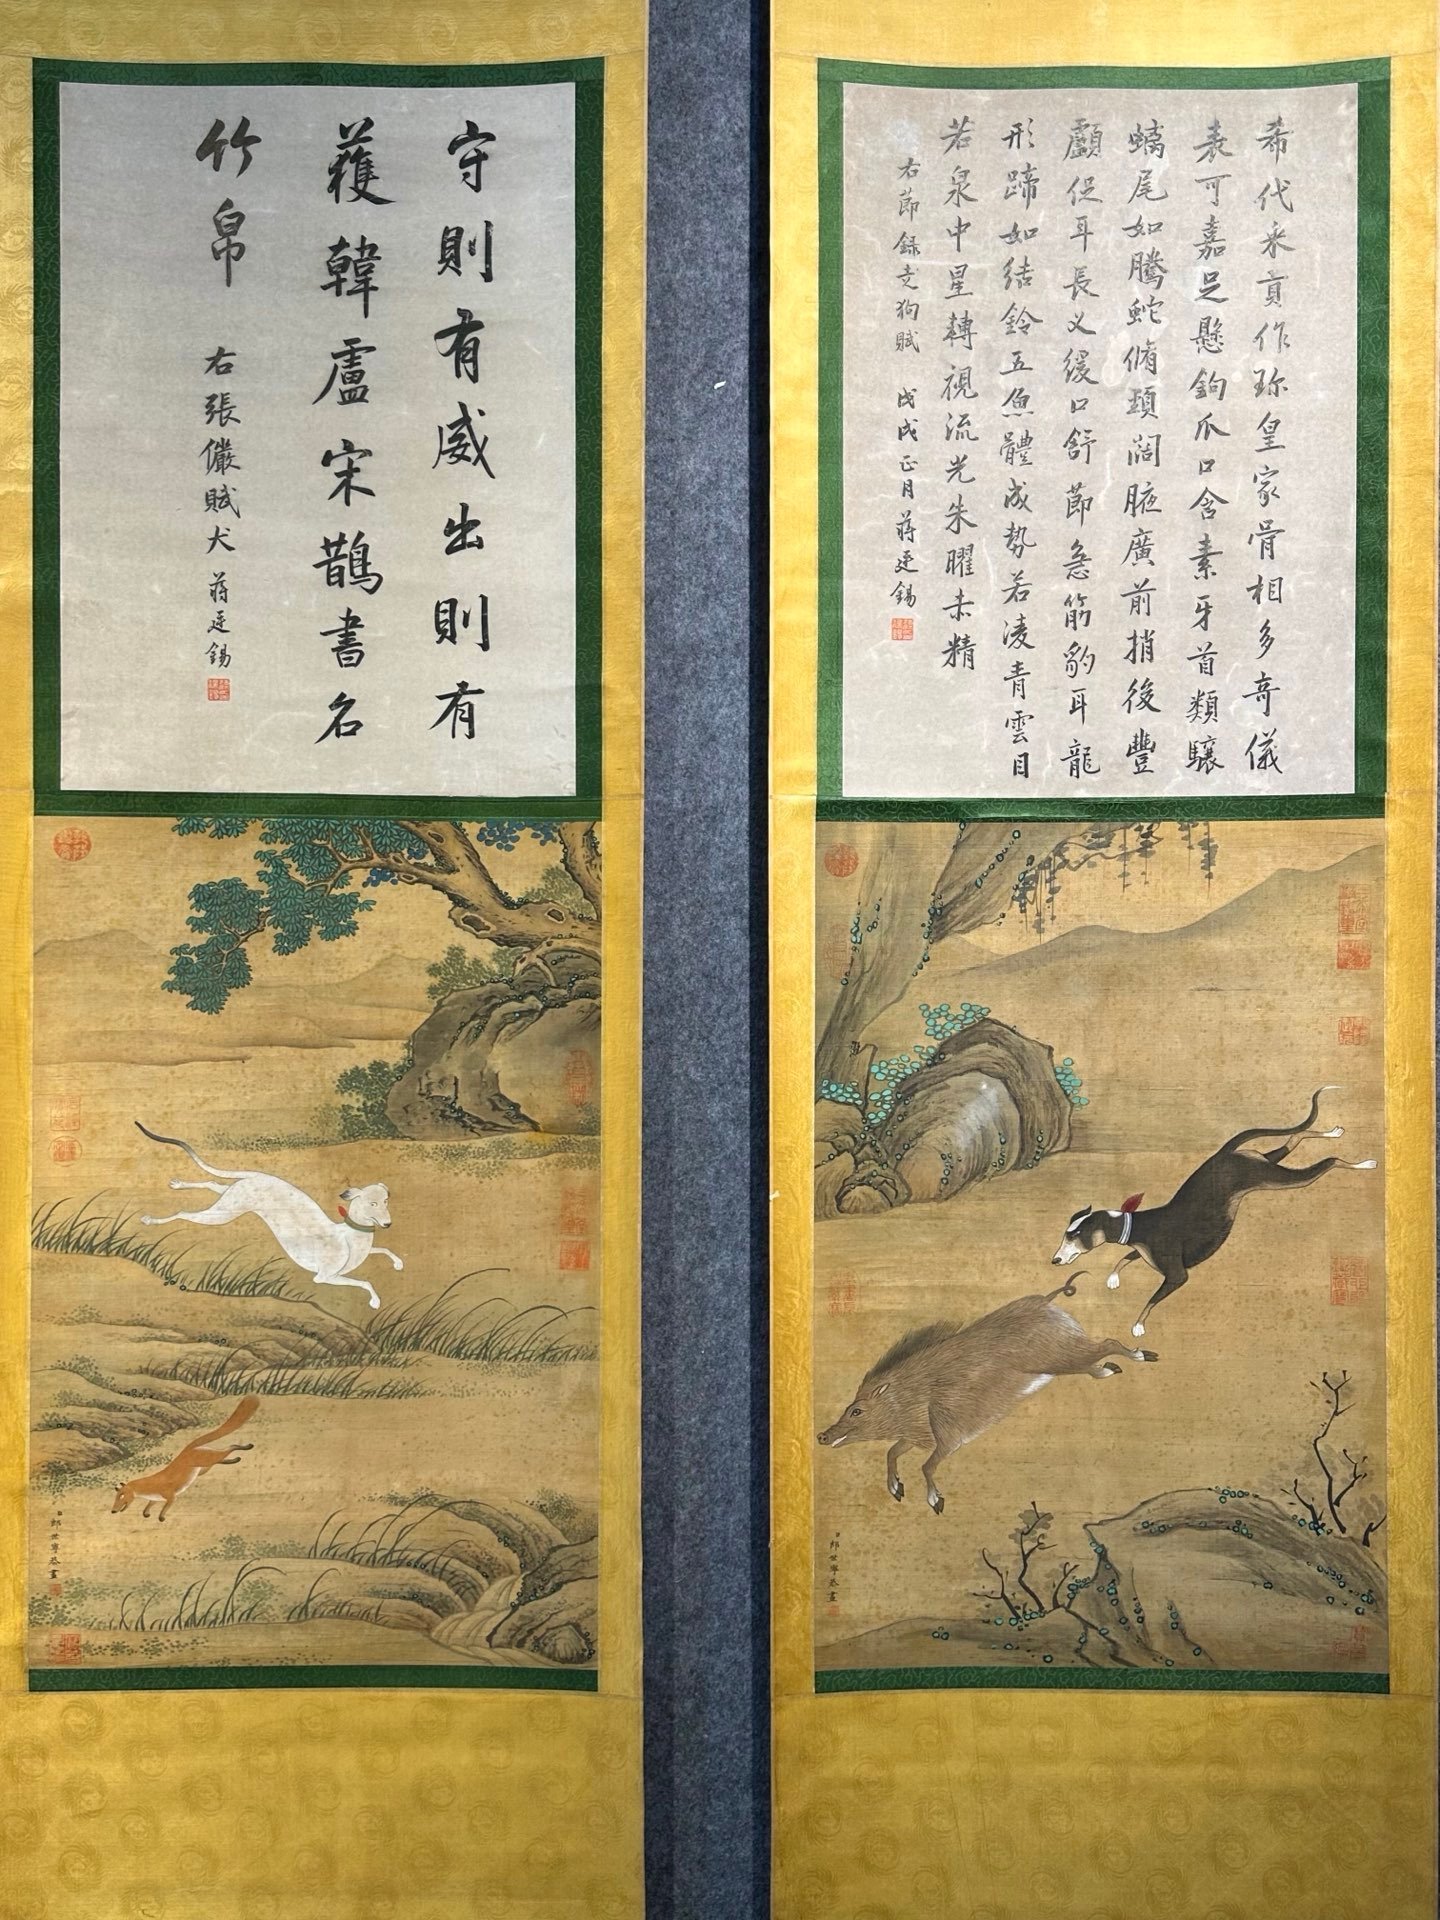 希代来貢作珎皇家骨相多奇儀
表可嘉足懸鉤爪口含素牙首類驤
螭尾如騰蛇脩頚闊腋廣前捎後豐
顱促耳長乂緩口舒節急筋豹耳龍
形蹄如結鈴五魚體成勢若凌青雲目
若泉中星轉視流光朱曜赤精
右節録走狗賦 戊戌正月蒋廷錫
郎世寧恭畫
守則有威出則有
獲韓盧宋鵲書名
竹帛
右張儼賦犬 蒋廷錫
郎世寧恭畫